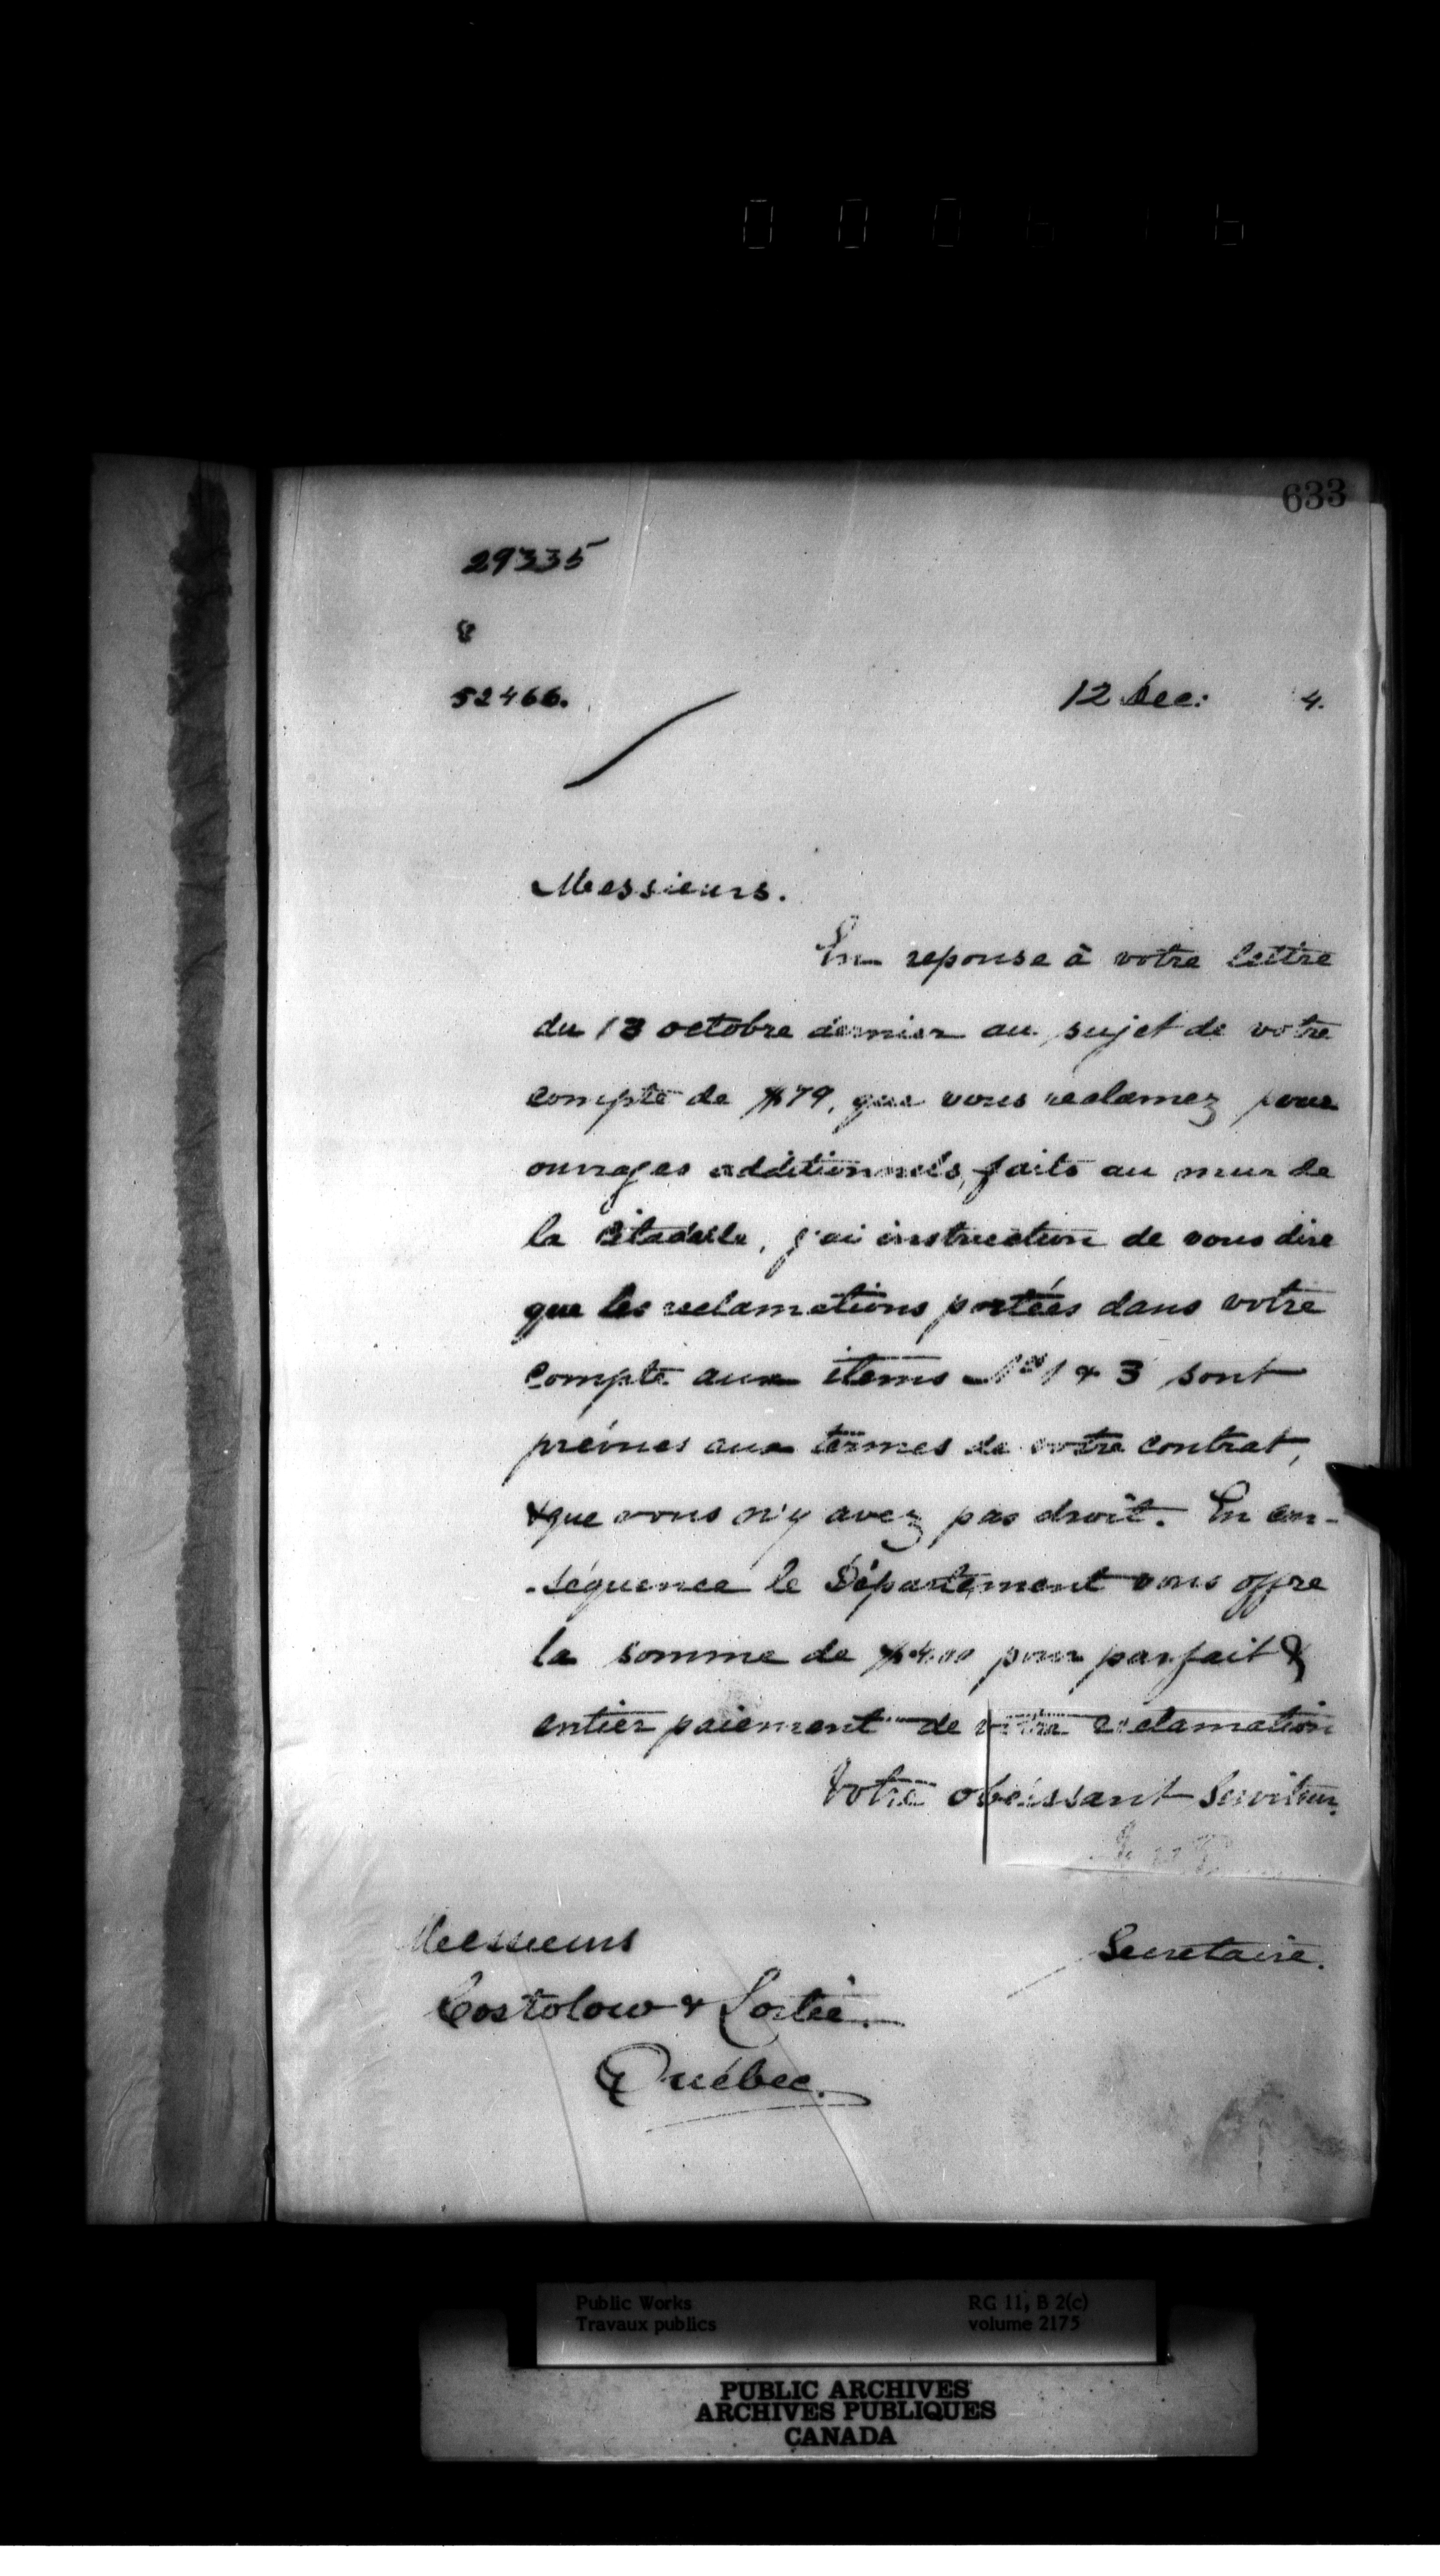 633
29335
8
52466.
12 Dec: 4.
Messieurs.
En reponse à votre lettre
du 13 octobre dernier au sujet de votre
compte de $79, que vous reclamez pour
ouvrages additionnels, faits au mur de
la Citadelle, j'ai instruction de vous dire
que les reclamations portées dans votre
compte aux items Nos 1 & 3 sont
prévues aux termes de votre contrat,
& que vous n'y avez pas droit. En con-
-séquence le Département vous offre
la somme de pour parfait &
entier paiement de votre reclamation
Votre obéissant Serviteur
Secretaire.
Messieurs
Costolow & Lortie.
Québec.
Public Works RG 11, B 2(c)
Travaux publics volume 2175
PUBLIC ARCHIVES
ARCHIVES PUBLIQUES
CANADA